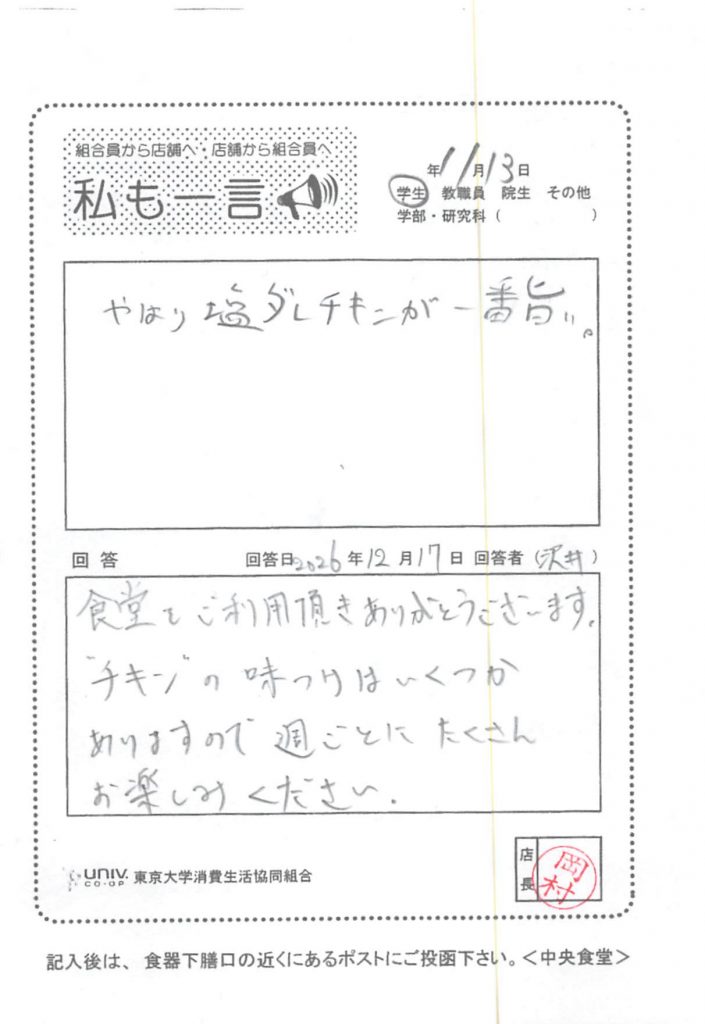 組合員から店舗へ・店舗から組合員へ
私も一言
年11月13日
学生 教職員 院生 その他
学部・研究科( )
やはり塩ダレチキンが一番旨い。
回答 回答日2026年12月17日 回答者(沢井)
食堂をご利用頂きありがとうございます。
"チキン"の味つけはいくつか
ありますので週ごとにたくさん
お楽しみください.
UNIV.
CO-OP
東京大学消費生活協同組合
店長
岡村
記入後は、食器下膳口の近くにあるポストにご投函下さい。<中央食堂>